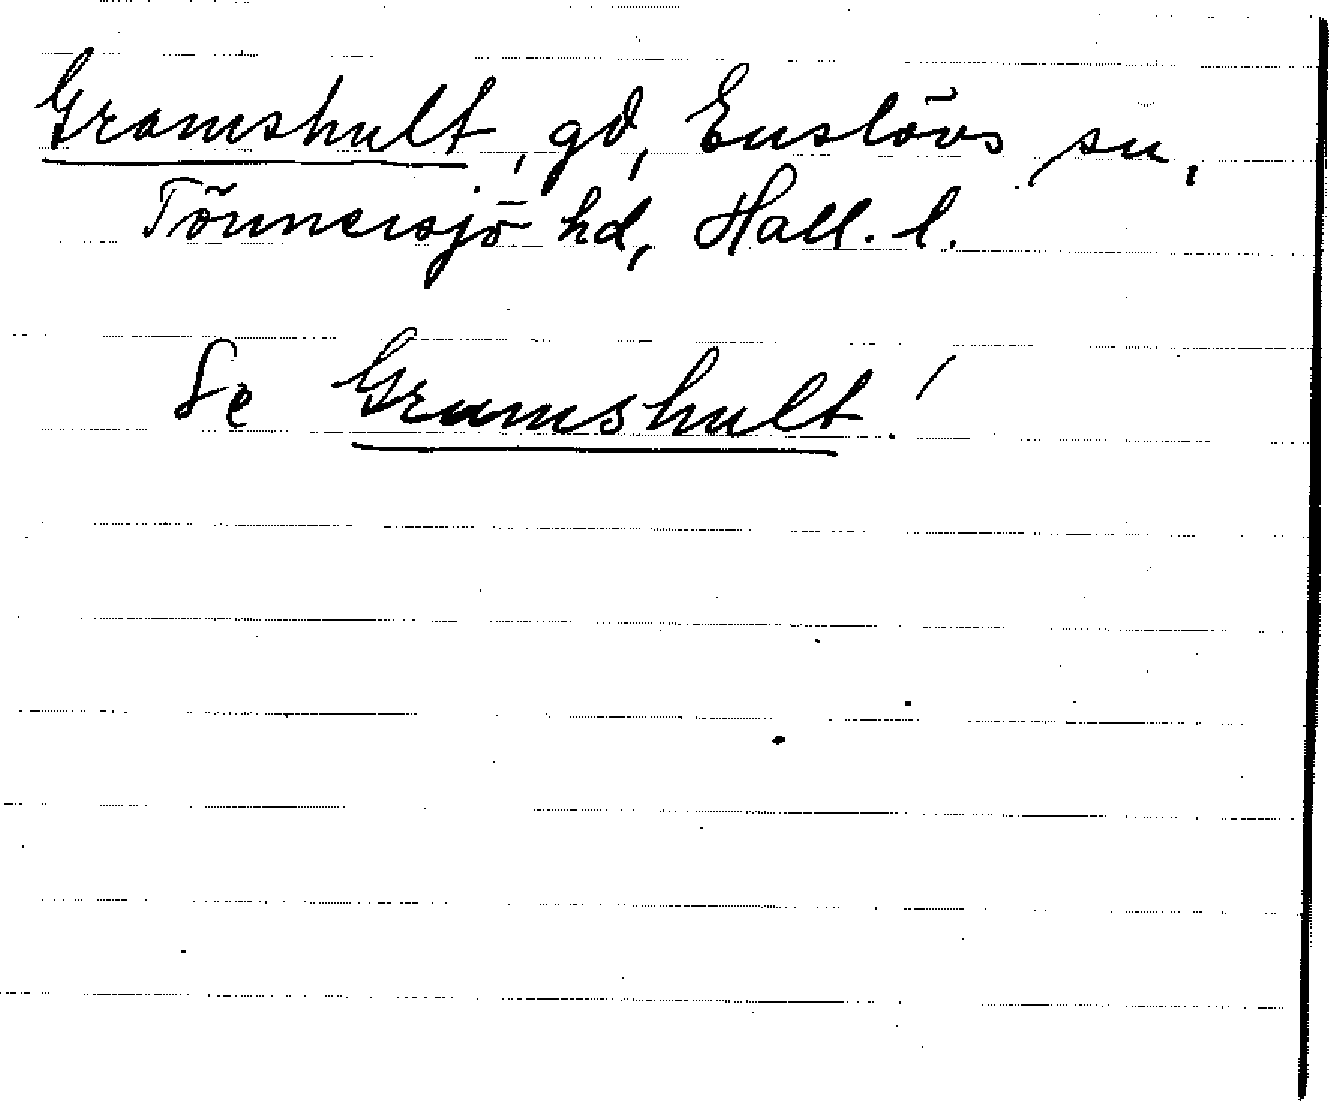 Gramshult, gd, Enslövs sn,
Tönnersjö hd, Hall. l.
Se Grumshult!